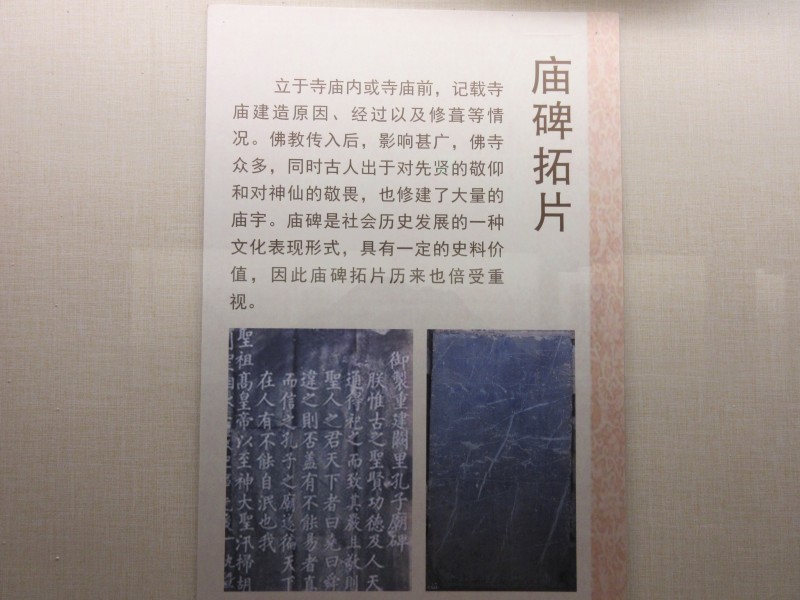 庙碑拓片
立于寺庙内或寺庙前，记载寺
庙建造原因、经过以及修葺等情
况。佛教传入后，影响甚广，佛寺
众多，同时古人出于对先贤的敬仰
和对神仙的敬畏，也修建了大量的
庙宇。庙碑是社会历史发展的一种
文化表现形式，具有一定的史料价
值，因此庙碑拓片历来也倍受重
视。
御製重建闕里孔子廟碑
朕惟古之聖賢功德及人天
通得祀之而致其嚴且敬則
聖人之君天下者曰堯曰舜
違之則否盖有不能易者真
而信之孔子之廟遂徧天下
在人有不能自泯也我
聖祖高皇帝以至神大聖汛掃胡